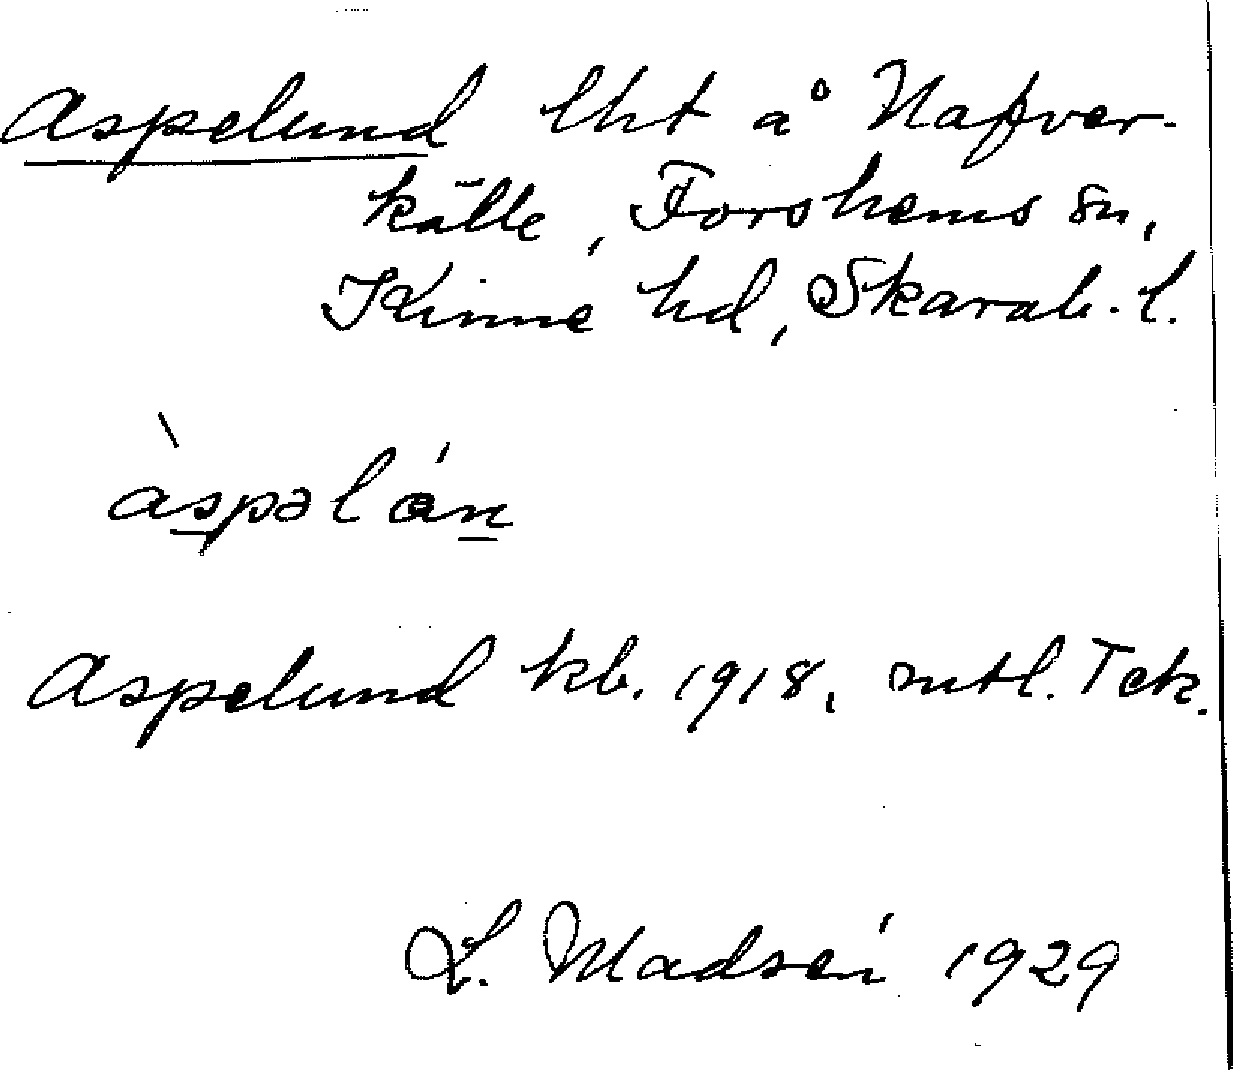 Aspelund lht å Nafver-
källe, Forshems sn,
Kinne hd, Skarab. l.
àspəlán
Aspelund kb. 1918, mtl. Tek.
L. Madsén 1929